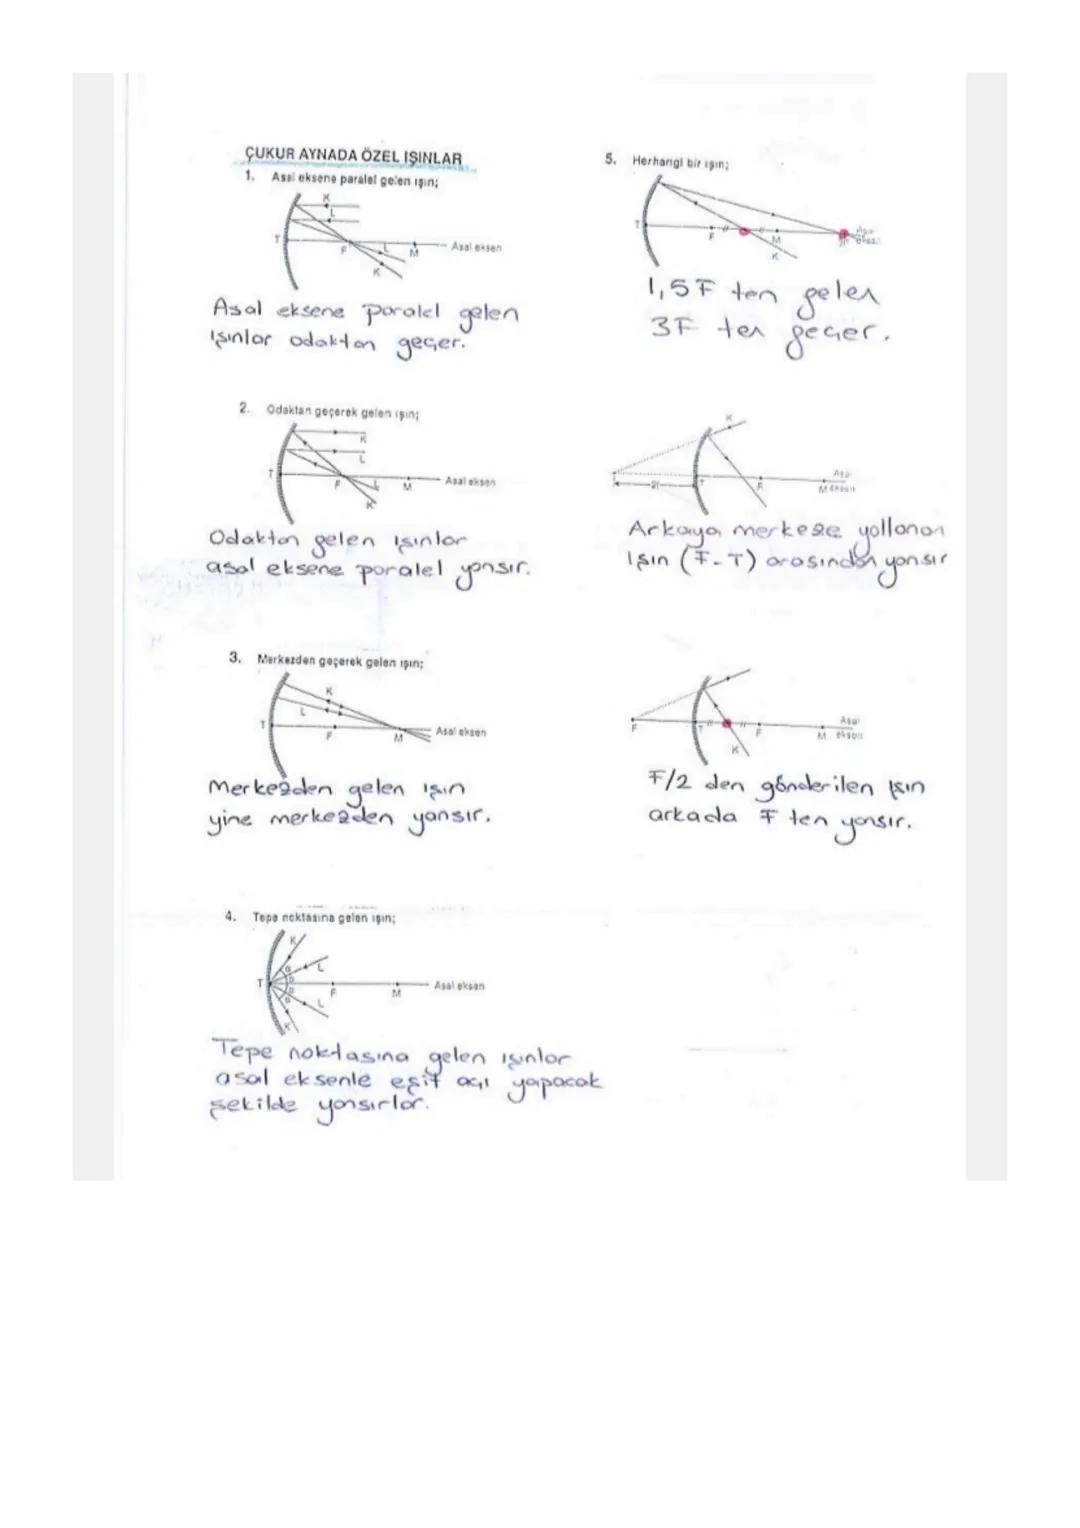 ÇUKUR AYNADA ÖZEL IŞINLAR
1. Asal eksene paralel gelen ışın;
K
L
T
F
L
M
Asal eksen
K
Asal eksene paralel gelen
ışınlar odaktan geçer.
2. Odaktan geçerek gelen ışın;
K
L
T
F
L
M
Asal eksen
K
Odaktan gelen ışınlar
asal eksene paralel yansır.
3. Merkezden geçerek gelen ışın;
K
L
T
F
M
Asal eksen
Merkezden gelen ışın
yine merkezden yansır.
4. Tepe noktasına gelen ışın;
K
L
T
F
M
Asal eksen
L
K
Tepe noktasına gelen ışınlar
asal eksenle eşit açı yapacak
şekilde yansırlar.
5. Herhangi bir ışın;
T
F
M
K
Asal
eksen
1,5F ten gelen
3F ten geçer.
K
2f
T
F
M
Asal
eksen
Arkaya merkeze yollanan
ışın (F-T) arasından yansır
F
T
F
M
Asal
eksen
K
F/2 den gönderilen ışın
arkada F ten yansır.